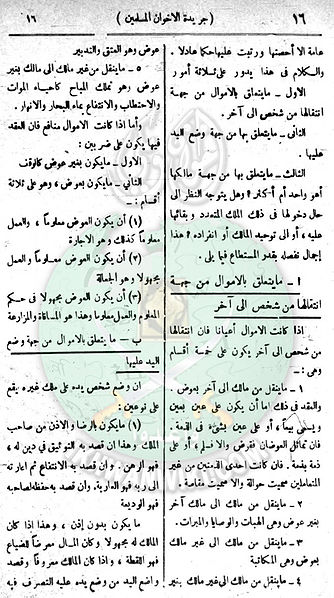 ١٦
( جريدة الاخوان المسلمين )
١٦
عامة الا أحصتها ورتبت عليها حكما عادلا .
والكلام فى هذا يدور على ثلاثة أمور
الاول ـ ما يتعلق بالاموال من جهة
انتقالها من شخص الى آخر .
الثانى ـ ما يتعلق بها من جهة وضع اليد
عليها .
الثالث ـ ما يتعلق بها من جهة مالكها
أهو واحد أم أكثر ؟ وهل يتوجه النظر الى
حال دخولها فى ذلك الملك المتعدد وبقائها
عليه ، أو الى توحيد المالك أو انفراده ؟ هذا
إجمال نفصله بقدر المستطاع فيما يلى .
ا ـ ما يتعلق بالاموال من جهة
انتقالها من شخص الى آخر
إذا كانت الاموال أعيانا فان انتقالها
من شخص الى آخر يكون على خمسة أقسام
وهى :ـ
١ ـ ما ينتقل من مالك الى آخر بعوض .
والعقد فى ذلك اما أن يكون على عين بعين
ويسمى بيعاً ، أو على عين بشىء فى الذمة .
فان تماثل العوضان فقرض والا فسلم ، أو على
ذمة بذمة . فان كانت احدى الذمتين من غير
المتعاملين سميت حوالة والا سميت مقاصة .
٢ ـ ما ينتقل من مالك الى مالك آخر
بغير عوض وهى الهبات والوصايا والميراث .
٣ ـ ما ينتقل من مالك الى غير مالك
بعوض وهى المكاتبة
٤ ـ ما ينتقل من مالك الى غير مالك بغير
عوض وهو العتق والتدبير
٥ ـ ما ينتقل من غير مالك الى مالك بغير
عوض وهو تملك المباح كاحياء الموات
والاحتطاب والانتفاع بماء البحار والانهار .
وأما اذا كانت الاموال منافع فان العقد
فيها يكون على ضربين :
الاول ـ ما يكون بغير عوض كالوقف
الثانى ـ ما يكون بعوض ، وهو على ثلاثة
أقسام :ـ
(١) أن يكون العوض معلوماً ، والعمل
معلوماً كذلك وهو الاجارة
(٢) أن يكون العوض معلوما والعمل
مجهولا وهو الجعالة
(٣) أن يكون العوض مجهولا فى حكم
المعلوم والعمل معلوما وهذا هو المساقاة والمزارعة
ب ـ ما يتعلق بالاموال من جهة وضع
اليد عليها
ان وضع شخص يده على ملك غيره يقع
على نوعين :
(١) ما يكون بالرضا والاذن من صاحب
الملك وهذا ان قصد به التوثيق فى دين له ،
فهو الرهن . وان قصد به الانتفاع ثم اعادته
الى ربه فهو العارية . وان قصد به حفظه لصاحبه
فهو الوديعة
ما يكون بدون إذن ، وهذا إذا كان
الملك له مجهولا وكان المال معرضاً للضياع
فهو اللقطة ، واذا كان المالك معروفا وقصد
واضع اليد من وضع يده عليه التصرف فيه